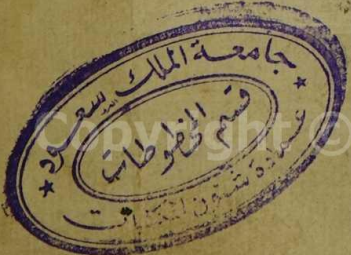 جامعة الملك سعود
قسم المخطوطات
عمادة شئون المكتبات
Copyright ©